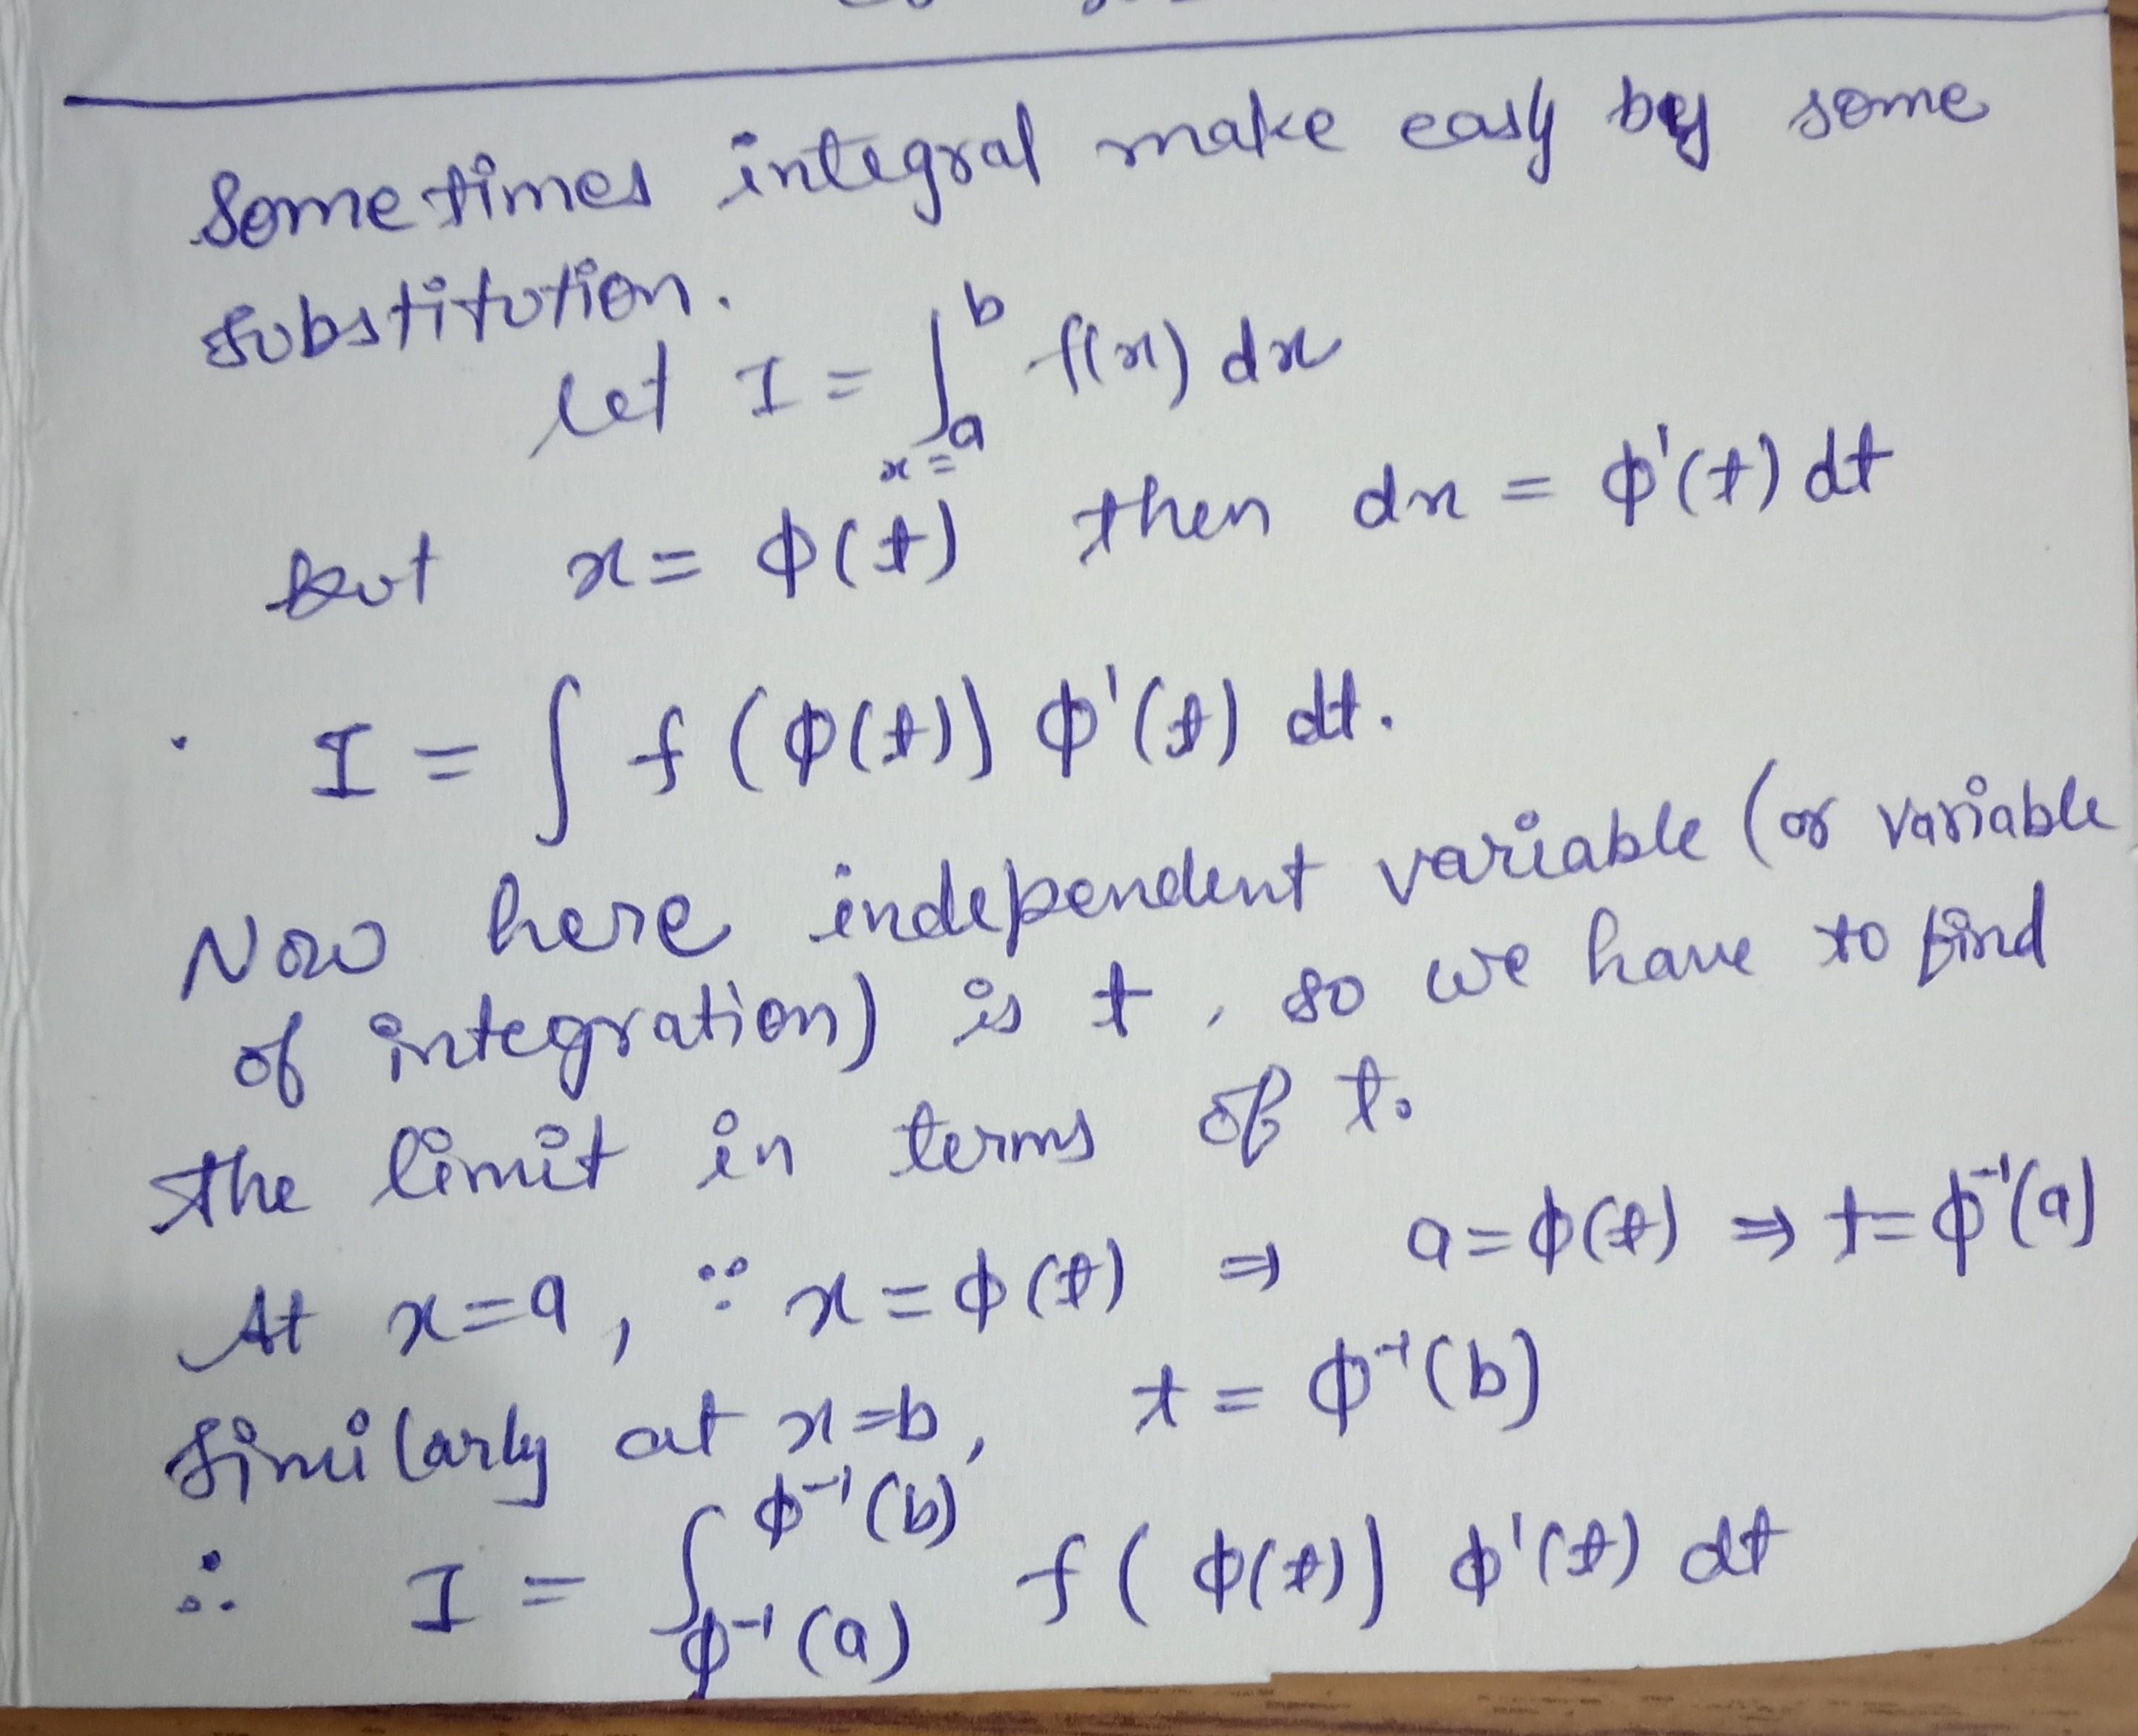 Sometimes integral make easy by some
substitution.
Let I = ∫_{x=a}^{b} f(x) dx
put x = ϕ(t) then dx = ϕ'(t) dt
. I = ∫ f (ϕ(t)) ϕ'(t) dt.
Now here independent variable (or variable
of integration) is t, so we have to find
the limit in terms of t.
At x=a, ∵ x = ϕ(t) ⇒ a=ϕ(t) ⇒ t=ϕ⁻¹(a)
Similarly at x=b, t = ϕ⁻¹(b)
∴ I = ∫_{ϕ⁻¹(a)}^{ϕ⁻¹(b)} f ( ϕ(t)) ϕ'(t) dt